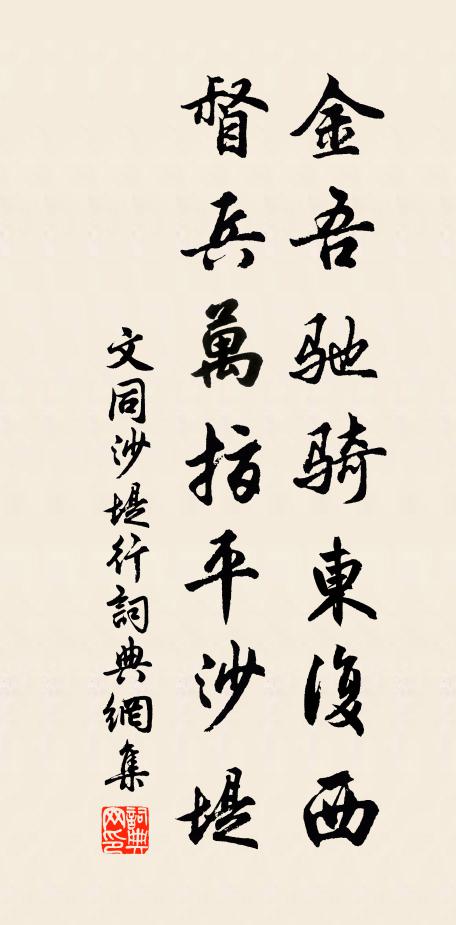 金吾驰骑東復西
督兵萬指平沙堤
文同沙堤行詞典網集
詞典网印